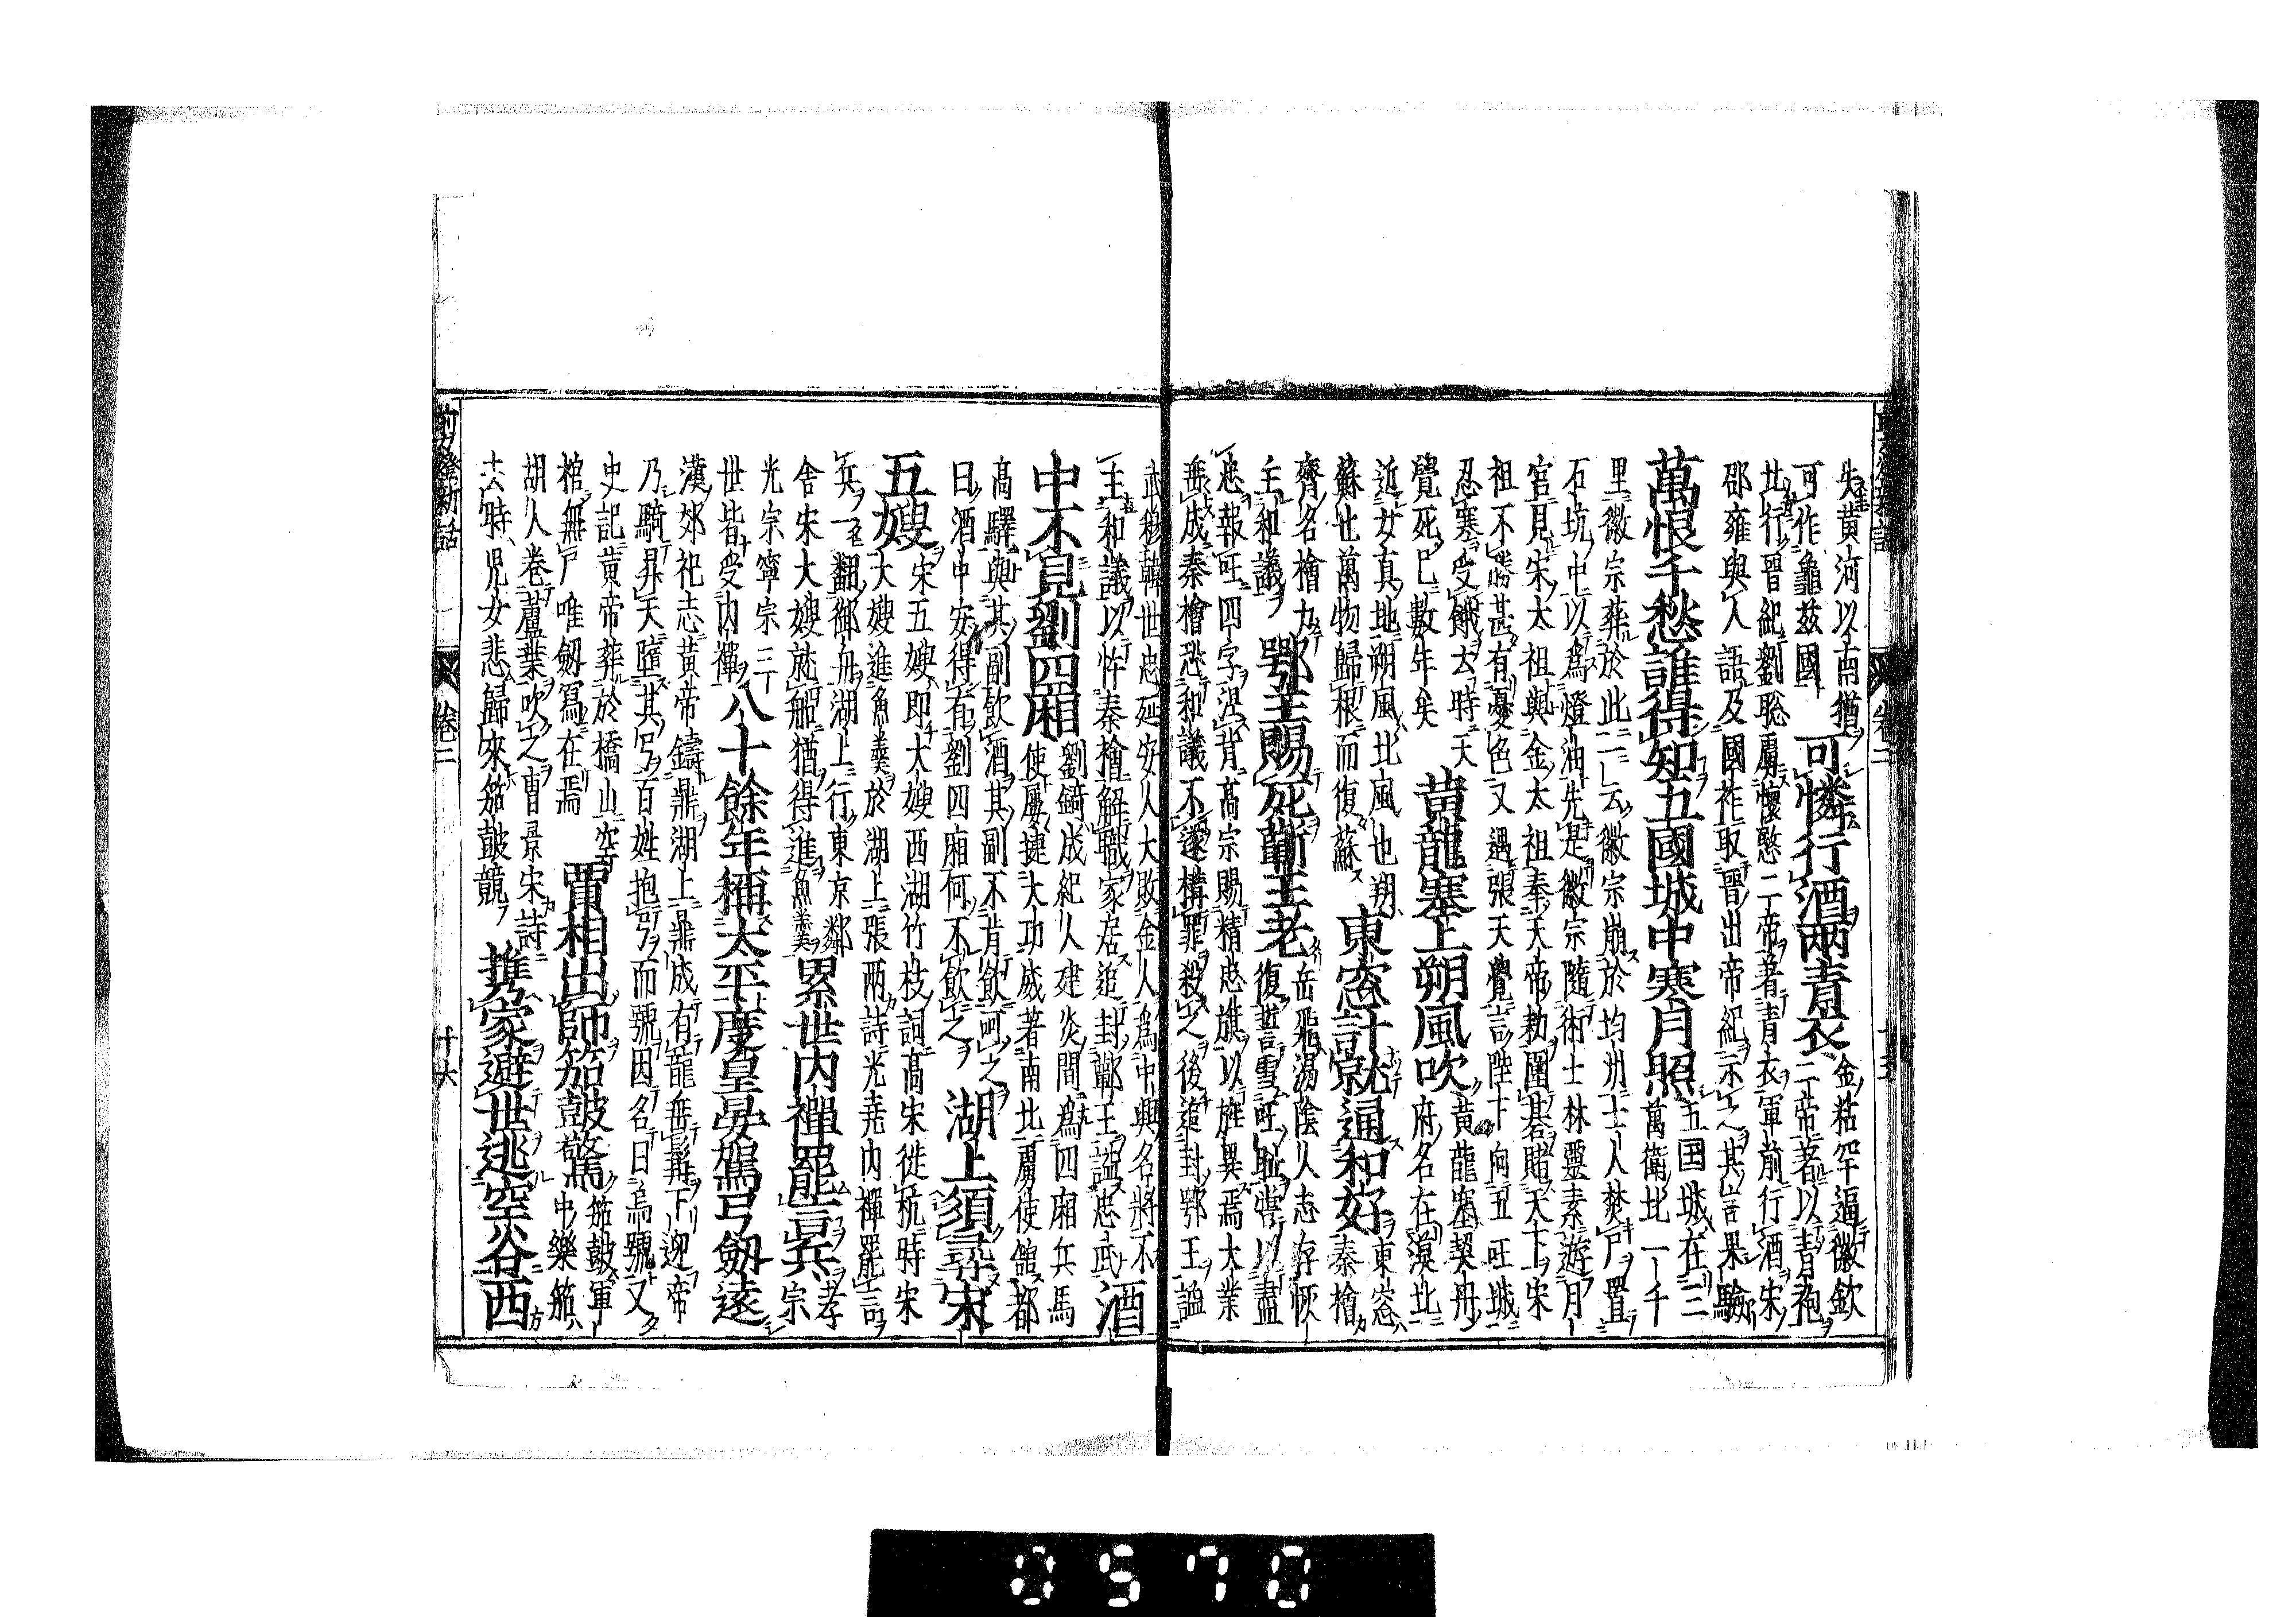 失黄河以南猶
可作龜茲國
可憐行酒兩青衣
金粘罕逼徽欽
二帝著以青袍
北行晋紀劉聡虜懷愍二帝著青衣軍前行酒宋
邵雍與人語及國祚取晋出帝紀示之其言果驗
萬恨千愁誰得知五國城中寒月照
五国城在三
萬衛北一千
里徽宗葬於此二云徽宗崩於均州土人焚尸置
石坑中以為燈油先是徽宗隨術士林靈素遊月
宮見宋太祖與金太祖奉天帝勅圍碁賭天下宋
祖不勝甚有憂色又遇張天覺言陛下向五旺城
忍寒受餓去時天
覺死已數年矣
黄龍塞上朔風吹
黄龍塞契丹
府名在漠北
近女真地朔風北風也朔
蘇也萬物歸根而復蘇
東窓計就通和好
東窓
秦檜
齊名檜九
主和議
鄂王賜死蘄王老
岳飛湯陰人志存恢
復誓雪旺恥嘗以盡
忠報旺四字涅背高宗賜精忠旗以旌異焉大業
垂成秦檜恐和議不遂構罪殺之後追封鄂王謚
武穆韓世忠延安人大敗金人為中興名將不
主和議以忤秦檜解職家居追封蘄王謚忠武
酒
中不見劉四廂
劉錡成紀人建炎間為四廂兵馬
使屢捷大功威著南北虜使館都
高驛與其副飲酒其副不肯飲呵之
曰酒中安得有劉四廂何不飲之
湖上須尋宋
五嫂
宋五嫂即大嫂西湖竹枝詞高宋徙杭時宋
大嫂進魚羹於湖上張兩詩光堯内禪罷言
兵一翻御舟湖上行東京鄰
舍宋大嫂就船猶得進魚羹
累世内禪罷言兵
孝
宗
光宗寧宗三
世皆受内禪
八十餘年稱太平度皇晏駕弓劔遠
漢郊祀志黄帝鑄鼎湖上鼎成有龍垂髯下迎帝
乃騎昇天墮其弓百姓抱弓而號因名曰烏號又
史記黄帝葬於橋山空
棺無尸唯劔寫在焉
賈相出師笳鼓驚
笳鼓軍
中樂笳
胡人卷蘆葉吹之曹景宋詩
去時児女悲歸来笳鼓競
携家避世逃空谷西
剪燈新話
卷二
十六